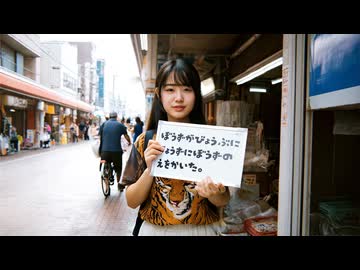 ぼうずがびょうぶに
じょうずにぼうずの
えをかいた。